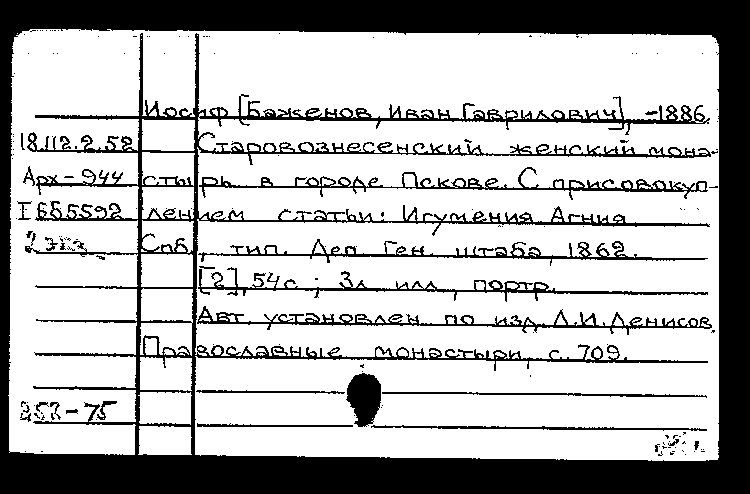 Иосиф [Баженов, Иван Гаврилович], -1886.
18.112.2.52 Старовознесенский женский мона-
Арх-944 стырь в городе Пскове. С присовокуп-
I 655592 лением статьи: Игумения Агния
2 экз. Спб., тип. Деп. Ген. штаба, 1862.
[2], 54 с.; 3 л. илл., портр.
Авт. установлен по изд. Л.И. Денисов.
Православные монастыри, с. 709.
253-75